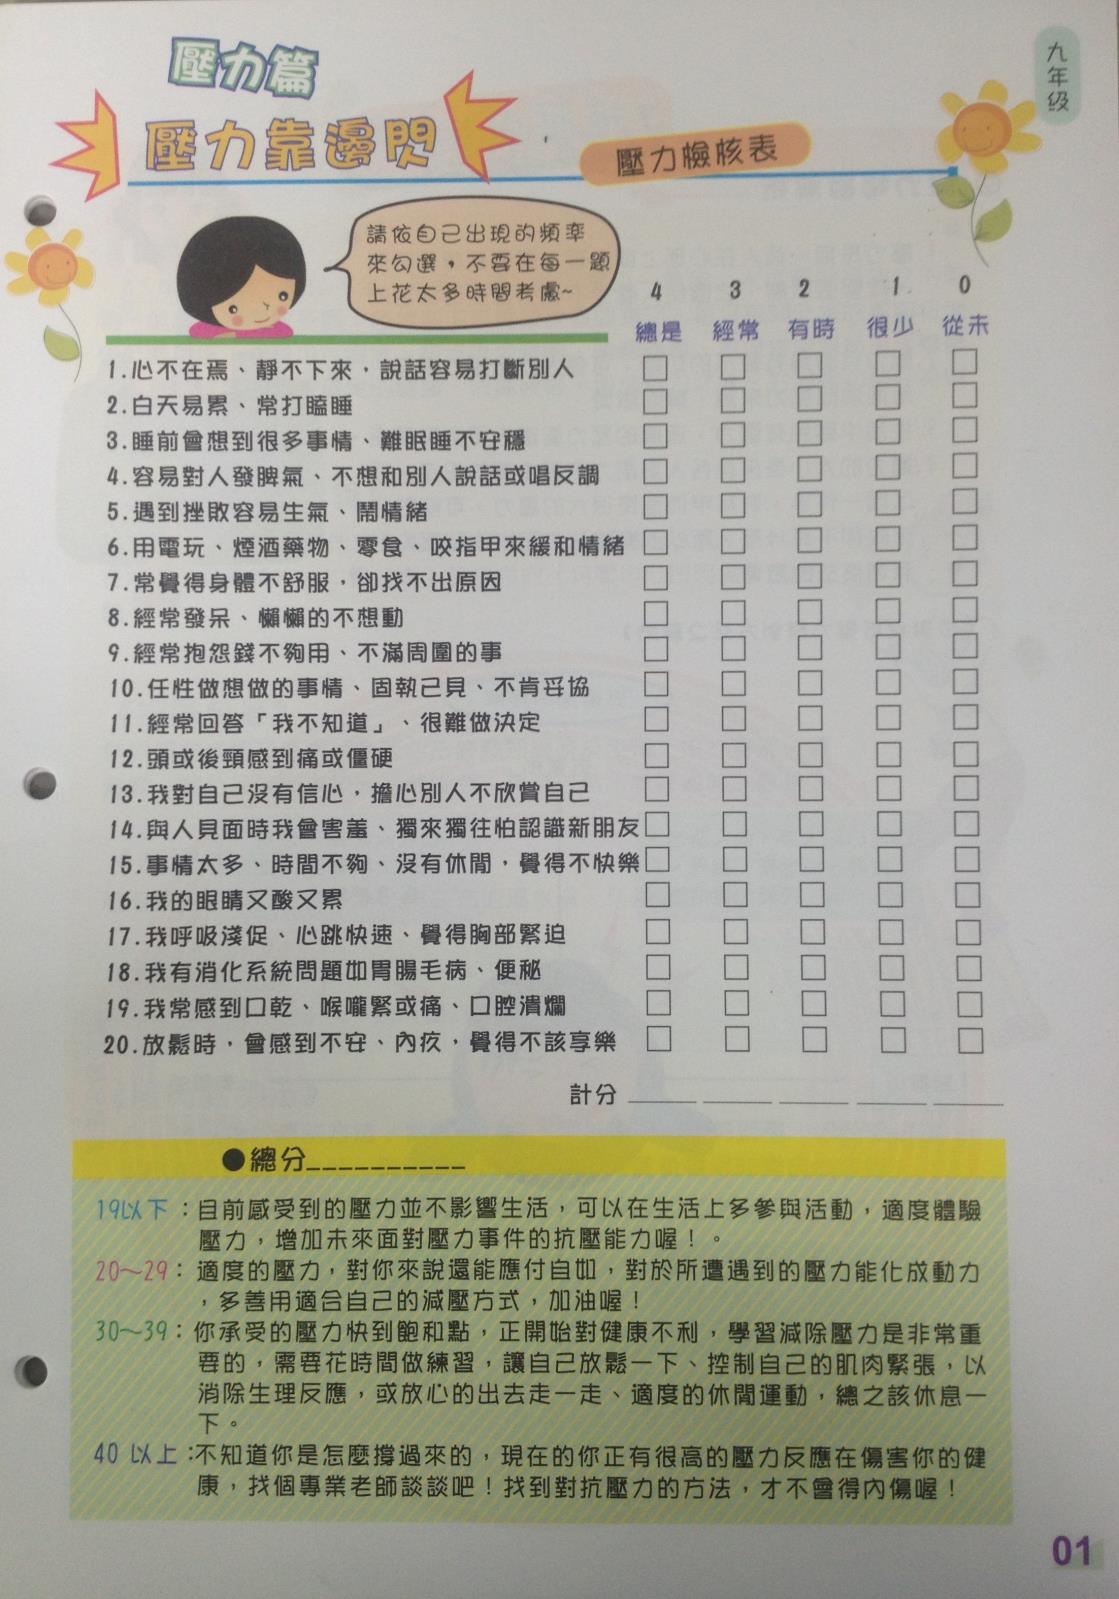 九年級
壓力篇
壓力靠邊閃
壓力檢核表
請依自己出現的頻率
來勾選，不要在每一題
上花太多時間考慮~
4 3 2 1 0
總是 經常 有時 很少 從未
1.心不在焉、靜不下來，說話容易打斷別人
2.白天易累、常打瞌睡
3.睡前會想到很多事情、難眠睡不安穩
4.容易對人發脾氣、不想和別人說話或唱反調
5.遇到挫敗容易生氣、鬧情緒
6.用電玩、煙酒藥物、零食、咬指甲來緩和情緒
7.常覺得身體不舒服，卻找不出原因
8.經常發呆、懶懶的不想動
9.經常抱怨錢不夠用、不滿周圍的事
10.任性做想做的事情、固執己見、不肯妥協
11.經常回答「我不知道」、很難做決定
12.頭或後頸感到痛或僵硬
13.我對自己沒有信心，擔心別人不欣賞自己
14.與人見面時我會害羞、獨來獨往怕認識新朋友
15.事情太多、時間不夠、沒有休閒，覺得不快樂
16.我的眼睛又酸又累
17.我呼吸淺促、心跳快速、覺得胸部緊迫
18.我有消化系統問題如胃腸毛病、便秘
19.我常感到口乾、喉嚨緊或痛、口腔潰爛
20.放鬆時，會感到不安、內疚，覺得不該享樂
計分
●總分__________
19以下：目前感受到的壓力並不影響生活，可以在生活上多參與活動，適度體驗
壓力，增加未來面對壓力事件的抗壓能力喔！。
20～29：適度的壓力，對你來說還能應付自如，對於所遭遇到的壓力能化成動力
，多善用適合自己的減壓方式，加油喔！
30～39：你承受的壓力快到飽和點，正開始對健康不利，學習減除壓力是非常重
要的，需要花時間做練習，讓自己放鬆一下、控制自己的肌肉緊張，以
消除生理反應，或放心的出去走一走、適度的休閒運動，總之該休息一
下。
40 以上：不知道你是怎麼撐過來的，現在的你正有很高的壓力反應在傷害你的健
康，找個專業老師談談吧！找到對抗壓力的方法，才不會得內傷喔！
01